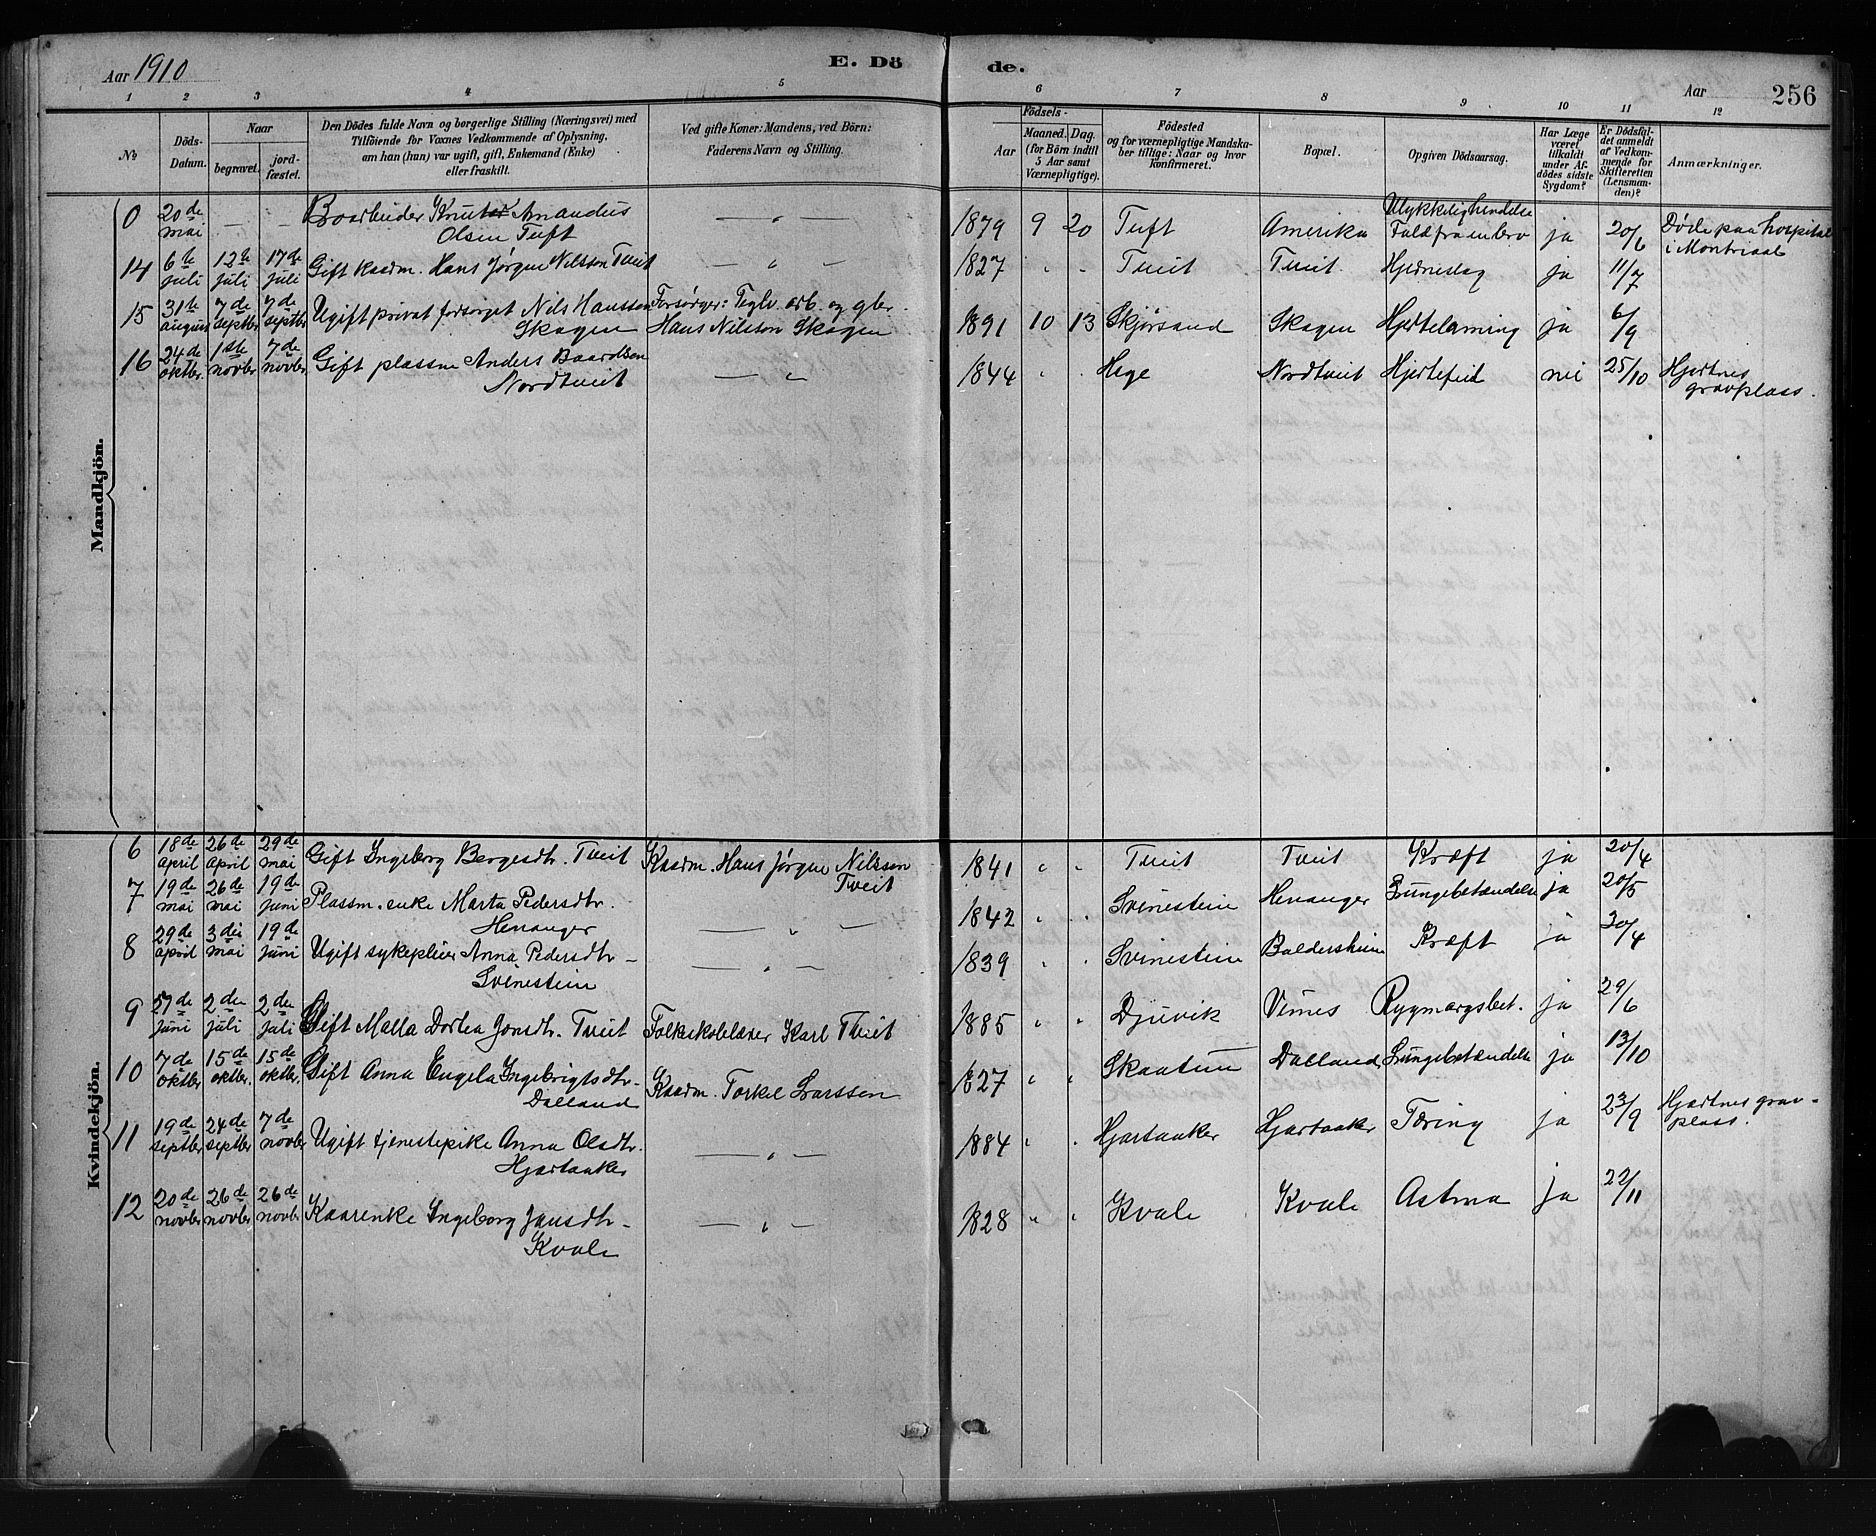 Aar 1910
E. Dö
de.
Aar
256
1 2 3 4 5 6 7 8 9 10 11 12
№
Döds-Datum.
Naar
begravet.
jord-fæstet.
Den Dödes fulde Navn og borgerlige Stilling (Næringsvei) med
Tilföiende for Voxnes Vedkommende af Oplysning,
om han (hun) var ugift, gift, Enkemand (Enke)
eller fraskilt.
Ved gifte Koner: Mandens, ved Börn:
Faderens Navn og Stilling.
Födsels-
Aar
Maaned. Dag.
(for Börn indtil
5 Aar samt
Værnepligtige).
Födested
og for værnepligtige Mandska-
ber tillige: Naar og hvor
konfirmeret.
Bopæl.
Opgiven Dödsaarsag.
Har Læge
været
tilkaldt
under Af-
dødes sidste
Sygdom?
Er Dödsfal-
det anmeldt
af Vedkom-
mende for
Skifteretten
(Lensman-
den)?
Anmærkninger.
Mandkjön.
0 20de mai — — Knut Amandus Olsen Tuft — " — 1879 9 20 Tuft Amerika Ulykkelighendelse Fald fra en bro ja 20/6 Døde paa hospital i Montriaal
14 6te juli 12te juli 17de juli Gift kaarm. Hans Jørgen Nilsson Tveit — " — 1827 " " Tveit Tveit Hjerneslag ja 11/7
15 31te august 7de septbr 7de septbr Ugift privat forsørget Nils Hansson Skogen Forsørger: Teglv. arb. og gbr. Hans Nilsson Skogen 1891 10 13 Skjørsand Skogen Hjertelamning ja 6/9
16 24de oktbr. 1ste novbr 7de novbr Gift plassm Anders Baardsen Nordtveit — " 1844 " " Hege Nordtveit Hjertefeil nei 25/10 Hjertnes gravplass.
Kvindekjön.
6 18de april 26de april 29de mai Gift Ingeborg Bergesdtr. Tveit Kaarm. Hans Jørgen Nilsson Tveit 1841 " " Tveit Tveit Kræft ja 20/4
7 19de mai 26de mai 19de juni Plassm. enke Marta Pedersdtr. Henanger — " — 1842 " " Svinestein Henanger Lungebetændelse ja 20/5
8 29de april 3die mai 19de juni Ugift sykepleier Anna Pedersdtr Svinestein — " — 1839 " " Svinestein Baldersheim Kræft ja 30/4
9 27de juni 2den juli 2den juli Gift Malla Dortea Jonsdtr. Tveit Folkeskolelærer Karl Tveit 1885 " " Djuvik Vines Rygmargsbet. ja 29/6
10 7de oktbr 15de oktbr. 15de oktbr. Gift Anna Engela Ingebrigtsdtr. Dalland Kaarm. Torkel Larssen 1827 " " Skaatun Dalland Lungebetændelse ja 13/10
11 19de septbr 24de septbr 7de novbr Ugift tjenestepike Anna Olsdtr. Hjartaaker — " — 1884 " " Hjartaaker Hjartaaker Tæring ja 23/9 Hjertnes grav-plass.
12 20de novbr 26de novbr 26de novbr Kaarenke Ingeborg Jansdtr Kvale — " — 1828 " " Kvale Kvale Astma ja 22/11